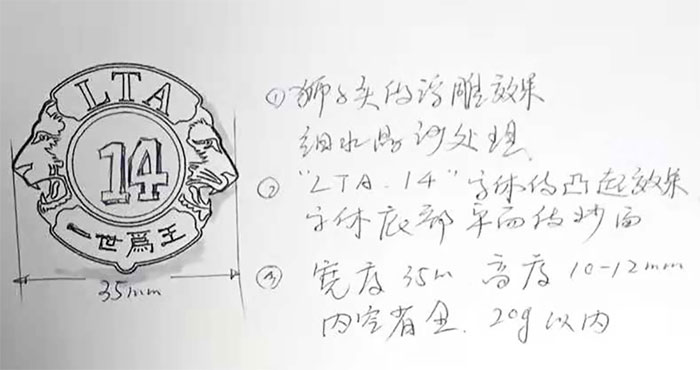 LTA
14
一世爲王
35mm
①狮子头做浮雕效果
细水晶沙处理
②"LTA.14"字体做凸起效果
字体底部平面做沙面
③宽度35m 高度10-12mm
内空省金.20g以内